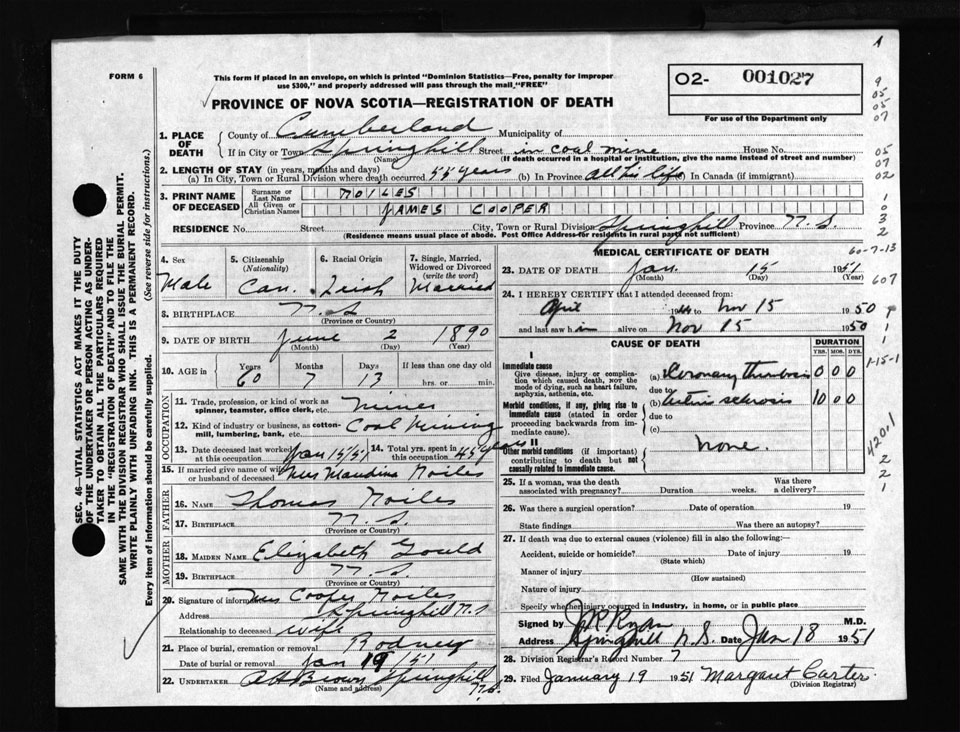 A
FORM 6
This form if placed in an envelope, on which is printed "Dominion Statistics—Free, penalty for improper
use $300," and properly addressed will pass through the mail, "FREE"
PROVINCE OF NOVA SCOTIA—REGISTRATION OF DEATH
O2- 001027
For use of the Department only
1. PLACE OF DEATH
County of Cumberland Municipality of
If in City or Town Springhill Street in coal mine House No.
(Name) (If death occurred in a hospital or institution, give the name instead of street and number)
2. LENGTH OF STAY (in years, months and days)
(a) In City, Town or Rural Division where death occurred 55 years (b) In Province all his life In Canada (if immigrant)
3. PRINT NAME OF DECEASED
Surname or Last Name NOILES
All Given or Christian Names JAMES COOPER
RESIDENCE No. Street City, Town or Rural Division Springhill Province N.S.
(Residence means usual place of abode. Post Office Address for residents in rural parts not sufficient)
4. Sex Male
5. Citizenship (Nationality) Can.
6. Racial Origin Irish
7. Single, Married, Widowed or Divorced (write the word) Married
8. BIRTHPLACE N.S.
(Province or Country)
9. DATE OF BIRTH June 2 1890
(Month) (Day) (Year)
10. AGE in Years 60 Months 7 Days 13 If less than one day old hrs. or min.
OCCUPATION
11. Trade, profession, or kind of work as spinner, teamster, office clerk, etc. Miner
12. Kind of industry or business, as cotton-mill, lumbering, bank, etc. Coal Mining
13. Date deceased last worked at this occupation Jan 15/51
14. Total yrs. spent in this occupation 45 years
15. If married give name of wife or husband of deceased Mrs Noiles
FATHER
16. NAME Thomas Noiles
17. BIRTHPLACE N.S.
(Province or Country)
MOTHER
18. MAIDEN NAME Elizabeth Gould
19. BIRTHPLACE N.S.
(Province or Country)
20. Signature of informant Mrs Cooper Noiles
Address Springhill N.S
Relationship to deceased wife
21. Place of burial, cremation or removal Rodney
Date of burial or removal Jan 19/51
22. UNDERTAKER A H Brown Springhill N.S.
(Name and address)
MEDICAL CERTIFICATE OF DEATH
23. DATE OF DEATH Jan. 15 1951
(Month) (Day)
24. I HEREBY CERTIFY that I attended deceased from:
April 19 to Nov 15 1950
and last saw him alive on Nov 15 1950
CAUSE OF DEATH
DURATION
YRS. MOS. DYS.
I
Immediate cause
Give disease, injury or complication which caused death, NOT the mode of dying, such as heart failure, asphyxia, asthenia, etc.
(a) Coronary thrombosis 0 0 0
due to
Morbid conditions, if any, giving rise to immediate cause (stated in order proceeding backwards from immediate cause).
(b) Arterio sclerosis 10 0 0
due to
(c)
II
Other morbid conditions (if important) contributing to death but not causally related to immediate cause.
None.
25. If a woman, was the death associated with pregnancy? Duration weeks. Was there a delivery?
26. Was there a surgical operation? Date of operation 19
State findings Was there an autopsy?
27. If death was due to external causes (violence) fill in also the following:—
Accident, suicide or homicide? Date of injury 19
(State which)
Manner of injury
(How sustained)
Nature of injury
Specify whether injury occurred in industry, in home, or in public place
Signed by J R Ryan M.D.
Address Springhill N.S. Date Jan 18 1951
28. Division Registrar's Record Number 7
29. Filed January 19 1951 Margaret Carter
(Division Registrar)
SEC. 46—VITAL STATISTICS ACT MAKES IT THE DUTY
OF THE UNDERTAKER OR PERSON ACTING AS UNDER-
TAKER TO OBTAIN ALL THE PARTICULARS REQUIRED
IN THE "REGISTRATION OF DEATH" AND TO FILE THE
SAME WITH THE DIVISION REGISTRAR WHO SHALL ISSUE THE BURIAL PERMIT.
WRITE PLAINLY WITH UNFADING INK. THIS IS A PERMANENT RECORD.
Every item of information should be carefully supplied. (See reverse side for instructions.)
9
05
05
07
05
07
02
1
0
3
2
60-7-13
607
9
1
1
1-15-1
420.1
2
2
1